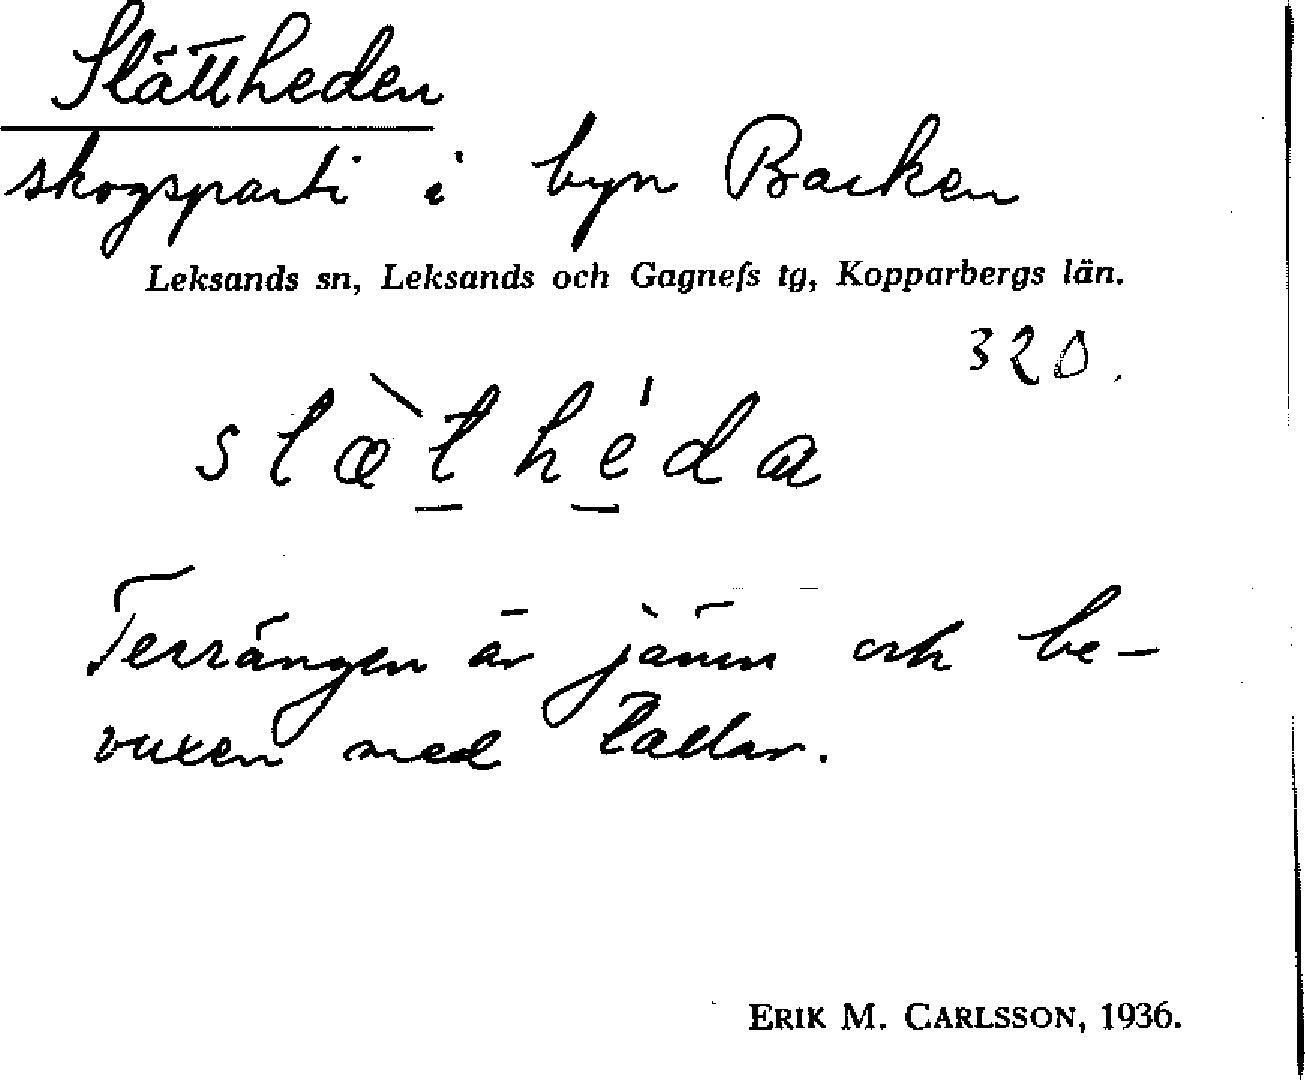 Slättheden
skogsparti i byn Backen
Leksands sn, Leksands och Gagnefs tg, Kopparbergs län.
320.
slæ̀t̲ hé̲da
Terrängen är jämn och be-
vuxen med tallar.
ERIK M. CARLSSON, 1936.